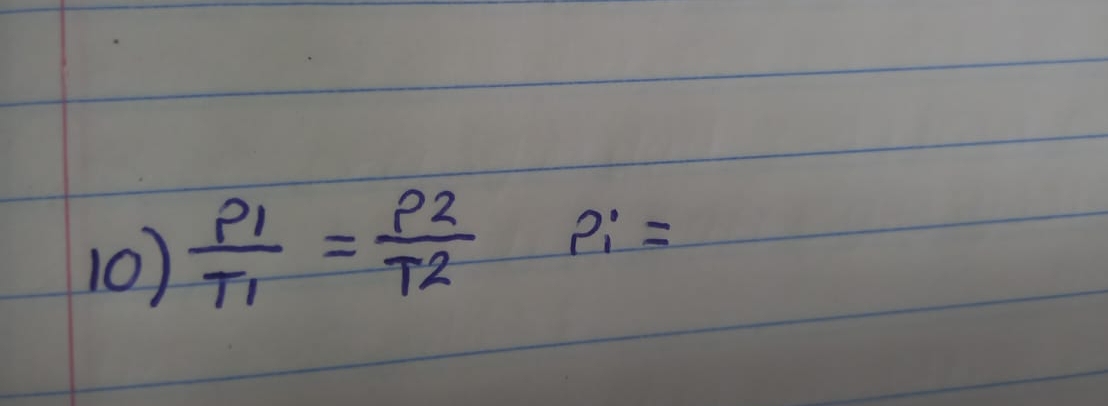 10) P1/T1 = P2/T2 Pi =